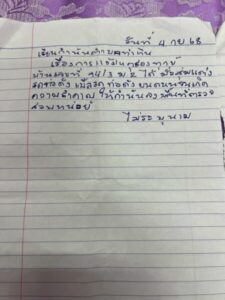 วันที่ 4 กย 68
เรียนกำนันตำบลท่าดิน
เรื่องการ
บ้านเลขที่ 94/3 ม 2 ได้ มีกลุ่มแต่ง
รถท่อดัง เบิ้ลรถ ท่อดังบนถนนจนเกิด
ความรำคาญ ให้กำนันลงพื้นที่ตรวจ
สอบหน่อย
ไม่ระบุนาม